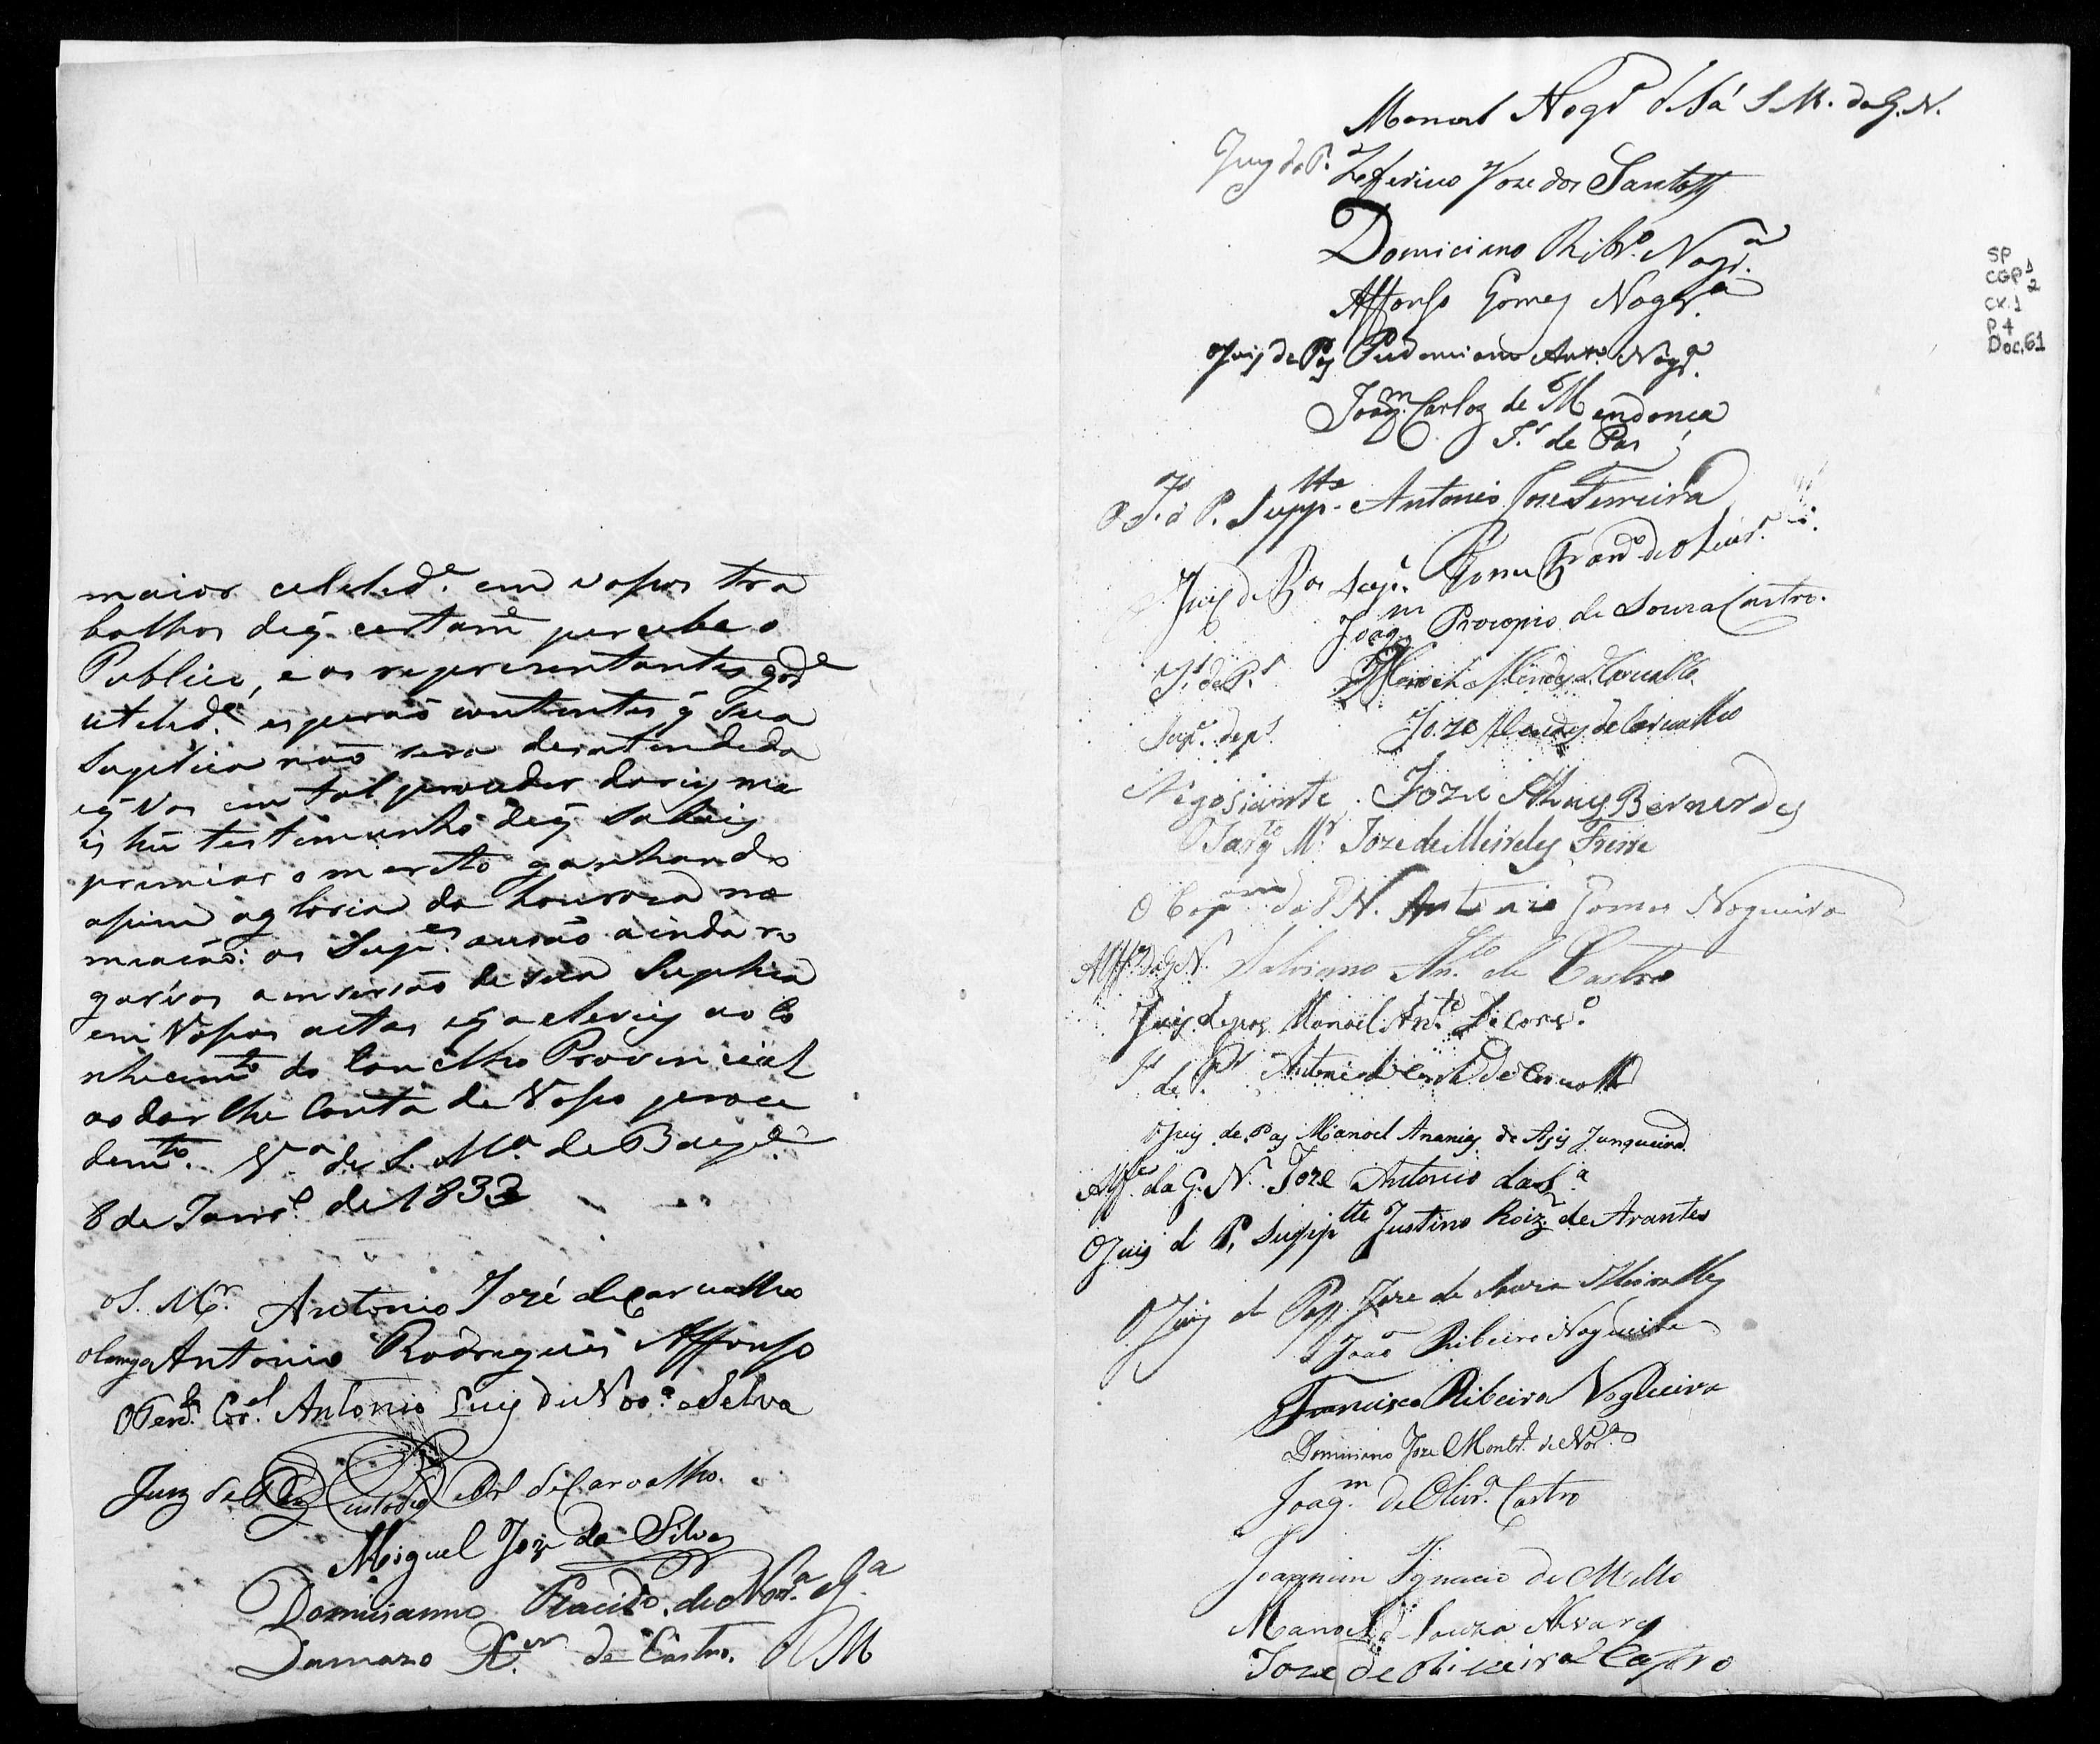 maior celebrid.e em vossos tra
balhos de q̃ certam.e percebe o
Publico, e os representantes gr.de
utelid.e, esperaõ contentes q̃ sua
suplica naõ sera desatendida
e q̃ Vos em tal proceder dareis ma
is hũ testemunho de q̃ sabeis
premiar o merito ganhando
assim a gloria da honroza na
meaçaõ: os Sup.es ousaõ ainda ro
garvos a inserçaõ de sua Suplica
em Vossas actas e q̃ a eleveis ao Co
nhecim.to do Concelho Provincial
ao dar lhe Conta de Vosso proce
dem.to. V.a de S. M.a de Baep.e
8 de Janr.o de 1833
O S. M.r Antonio José de Carvalho
Antonio Rodrigues Affonso
O Ten.e Cor.el Antonio Luis de Nor.a e Selva
Juiz de Paz Custodio de Carvalho.
Miguel Joze da Silva
Domisianno Placido de Nor.a e G.a
Damazo X.er de Castro. M
Manoel Nogr.a de Sá S. M. da G. N.
Juiz de P. Zeferino Joze dos Santos
Domiciano Ribr.o Nogr.a
Affonso Gomes Nogr.a
O Juis de Pas Prudenciano Ant.o Nogr.a
Joaq.m Carlos de Mendonca
J.s de Pas
SP
CGP 1
2
CX.1
P 4
Doc.61
O J.s d P. Supp.tte Antonio Joze Ferreira
Juis de Pas Sup.e Fran.co de Oliver.a
Joaq.m Procopio de Souza Castro.
J.s de P.s Mendes Carvalho
Sup.e de p.s Joze Mendes de Carvalho
Negosiante. Joze Alves Bernardes
O Sarg.to M.r Joze de Meireles Freire
O Cap.am da G N. Antonio Gomes Nogueira
Alff.s da G. N. Salviano An.to de Castro
Juis de pas Manoel An.to
J.s de P.s Antonio de Carvalho
O Juis de Pas Manoel Ananias de Asis Junqueira
Alf.es da G. N. Joze Antonio da S.a
O Juis d P. Supp.tte Justino Roiz de Arantes
O Juis d Pas Joze de Souza Meirelles
Joaõ Ribeiro Nogueira
Francisco Ribeiro Nogueira
Domiciano Joze Montr.o de Nor.a
Joaq.m de Olivr.a Castro
Joaquim Ignacio de Mello
Manoel de Souza Alvares
Joze de Oliveira Castro